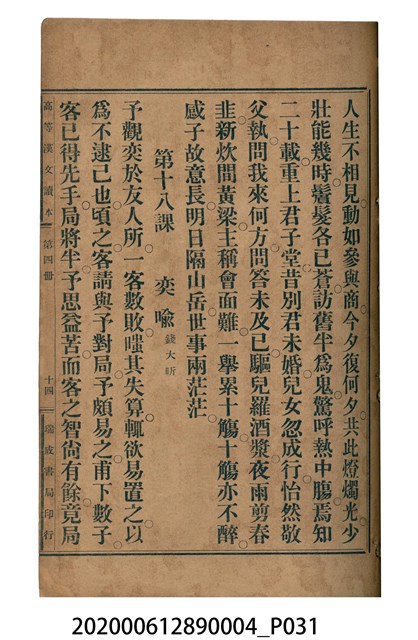 人生不相見動如參與商今夕復何夕共此燈燭光少
壯能幾時鬢髮各已蒼訪舊半為鬼驚呼熱中膓焉知
二十載重上君子堂昔別君未婚兒女忽成行怡然敬
父執問我來何方問答未及已驅兒羅酒漿夜雨剪春
韭新炊間黃梁主稱會面難一舉累十觴十觴亦不醉
感子故意長明日隔山岳世事兩茫茫
第十八課　奕喩　錢大昕
予觀奕於友人所一客數敗嗤其失算輒欲易置之以
爲不逮己也頃之客請與予對局予頗易之甫下數子
客已得先手局將半予思益苦而客之智尙有餘竟局
高等漢文讀本　第四冊　十四　瑞成書局印行
202000612890004_P031